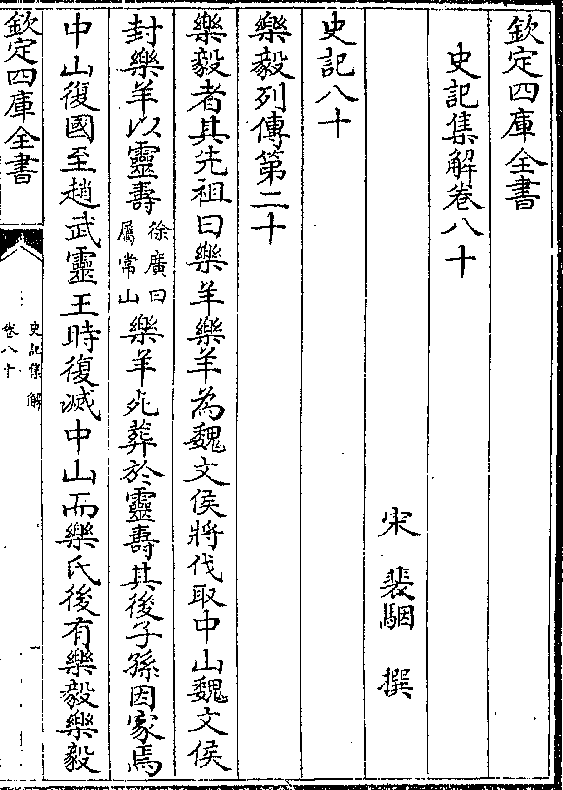 欽定四庫全書
史記集解卷八十
宋 裴駰 撰
史記八十
樂毅列傳第二十
樂毅者其先祖曰樂羊樂羊為魏文侯將伐取中山魏文侯
封樂羊以靈壽徐廣曰屬常山樂羊死葬於靈壽其後子孫因家焉
中山復國至趙武靈王時復滅中山而樂氏後有樂毅樂毅
欽定四庫全書
史記集解
卷八十
一